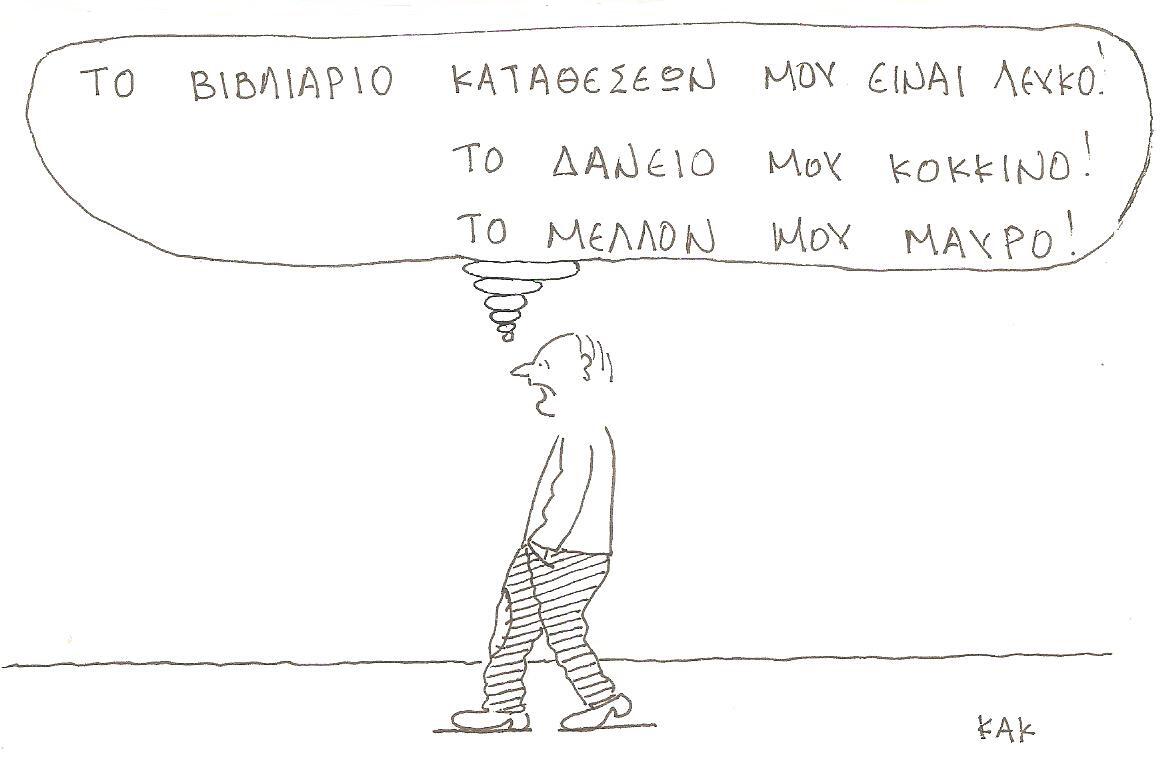 ΤΟ ΒΙΒΛΙΑΡΙΟ ΚΑΤΑΘΕΣΕΩΝ ΜΟΥ ΕΙΝΑΙ ΛΕΥΚΟ!
ΤΟ ΔΑΝΕΙΟ ΜΟΥ ΚΟΚΚΙΝΟ!
ΤΟ ΜΕΛΛΟΝ ΜΟΥ ΜΑΥΡΟ!
ΚΑΚ